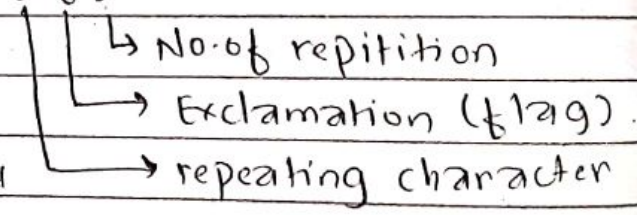 ↳ No. of repitition
→ Exclamation (flag).
→ repeating character